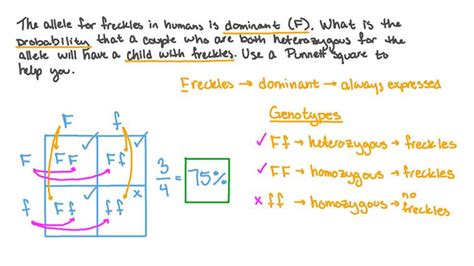 The allele for freckles in humans is dominant (F). What is the
probability that a couple who are both heterozygous for the
allele will have a child with freckles. Use a Punnett square to
help you.
Freckles → dominant → always expressed
Genotypes
✓ Ff → heterozygous → freckles
✓ FF → homozygous → freckles
x ff → homozygous → no freckles
F f
F FF ✓ Ff ✓
f Ff ✓ ff x
3/4 = 75%